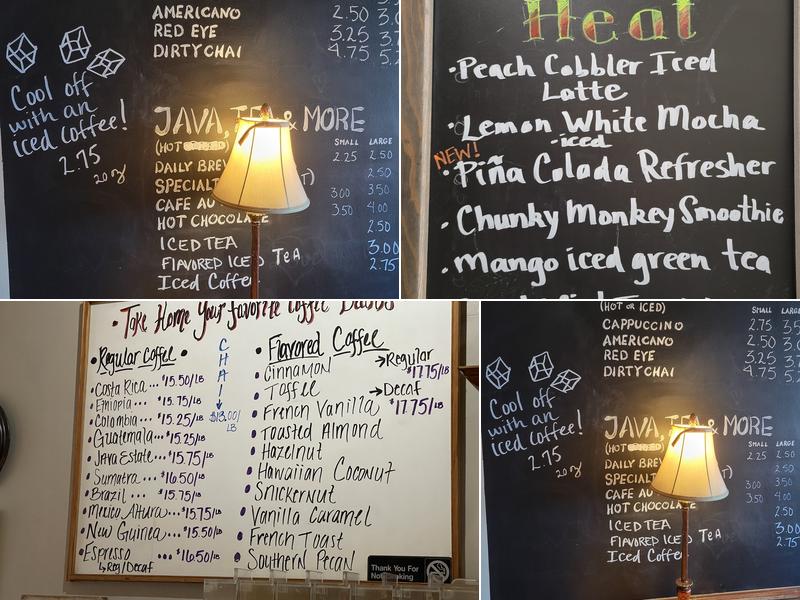 AMERICANO 2.50
RED EYE 3.25
DIRTY CHAI 4.75
Cool off
with an
Iced Coffee!
2.75
20 oz
JAVA, & MORE
SMALL LARGE
(HOT
DAILY 2.25 2.50
2.50
CAFE AU 3.00 3.50
HOT 3.50 4.00
2.50
ICED TEA
FLAVORED ICED TEA 3.00
Iced Coffee 2.75
Heat
·Peach Cobbler Iced
Latte
·Lemon White Mocha
-iced
NEW!
·Piña Colada Refresher
·Chunky Monkey Smoothie
·Mango iced green tea
·Take Home Your favorite Coffee
·Regular Coffee·
Costa Rica... $15.50/LB
Ethiopia... $15.75/LB
Colombia... $15.25/LB
Guatemala... $15.25/LB
Java Estate... $15.75/LB
Sumatra... $16.50/LB
Brazil... $15.75/LB
Mexico Altura... $15.75/LB
New Guinea... $15.50/LB
Espresso... $16.50/LB
↳Reg/Decaf
C
H
A
I
$13.00/
LB
·Flavored Coffee
Cinnamon
Toffee
French Vanilla
Toasted Almond
Hazelnut
Hawaiian Coconut
Snickernut
Vanilla Caramel
French Toast
Southern Pecan
→Regular
$17.75/LB
→Decaf
$17.75/LB
Thank You For
Not Smoking
(HOT OR ICED)
SMALL LARGE
CAPPUCCINO 2.75
AMERICANO 2.50
RED EYE 3.25
DIRTY CHAI 4.75
Cool off
with an
Iced Coffee!
2.75
20 oz
JAVA, & MORE
SMALL LARGE
(HOT
DAILY 2.25 2.50
2.50
CAFE AU 3.00 3.50
HOT 3.50 4.00
2.50
ICED TEA
FLAVORED ICED TEA 3.00
Iced Coffee 2.75